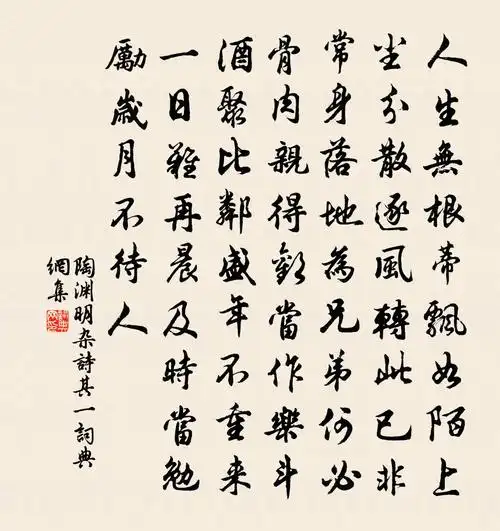 人生無根蒂飄如陌上
尘分散逐風轉此已非
常身落地為兄弟何必
骨肉親得歡當作樂斗
酒聚比鄰盛年不重来
一日難再晨及時當勉
勵歲月不待人
陶渊明杂詩其一詞典
網集